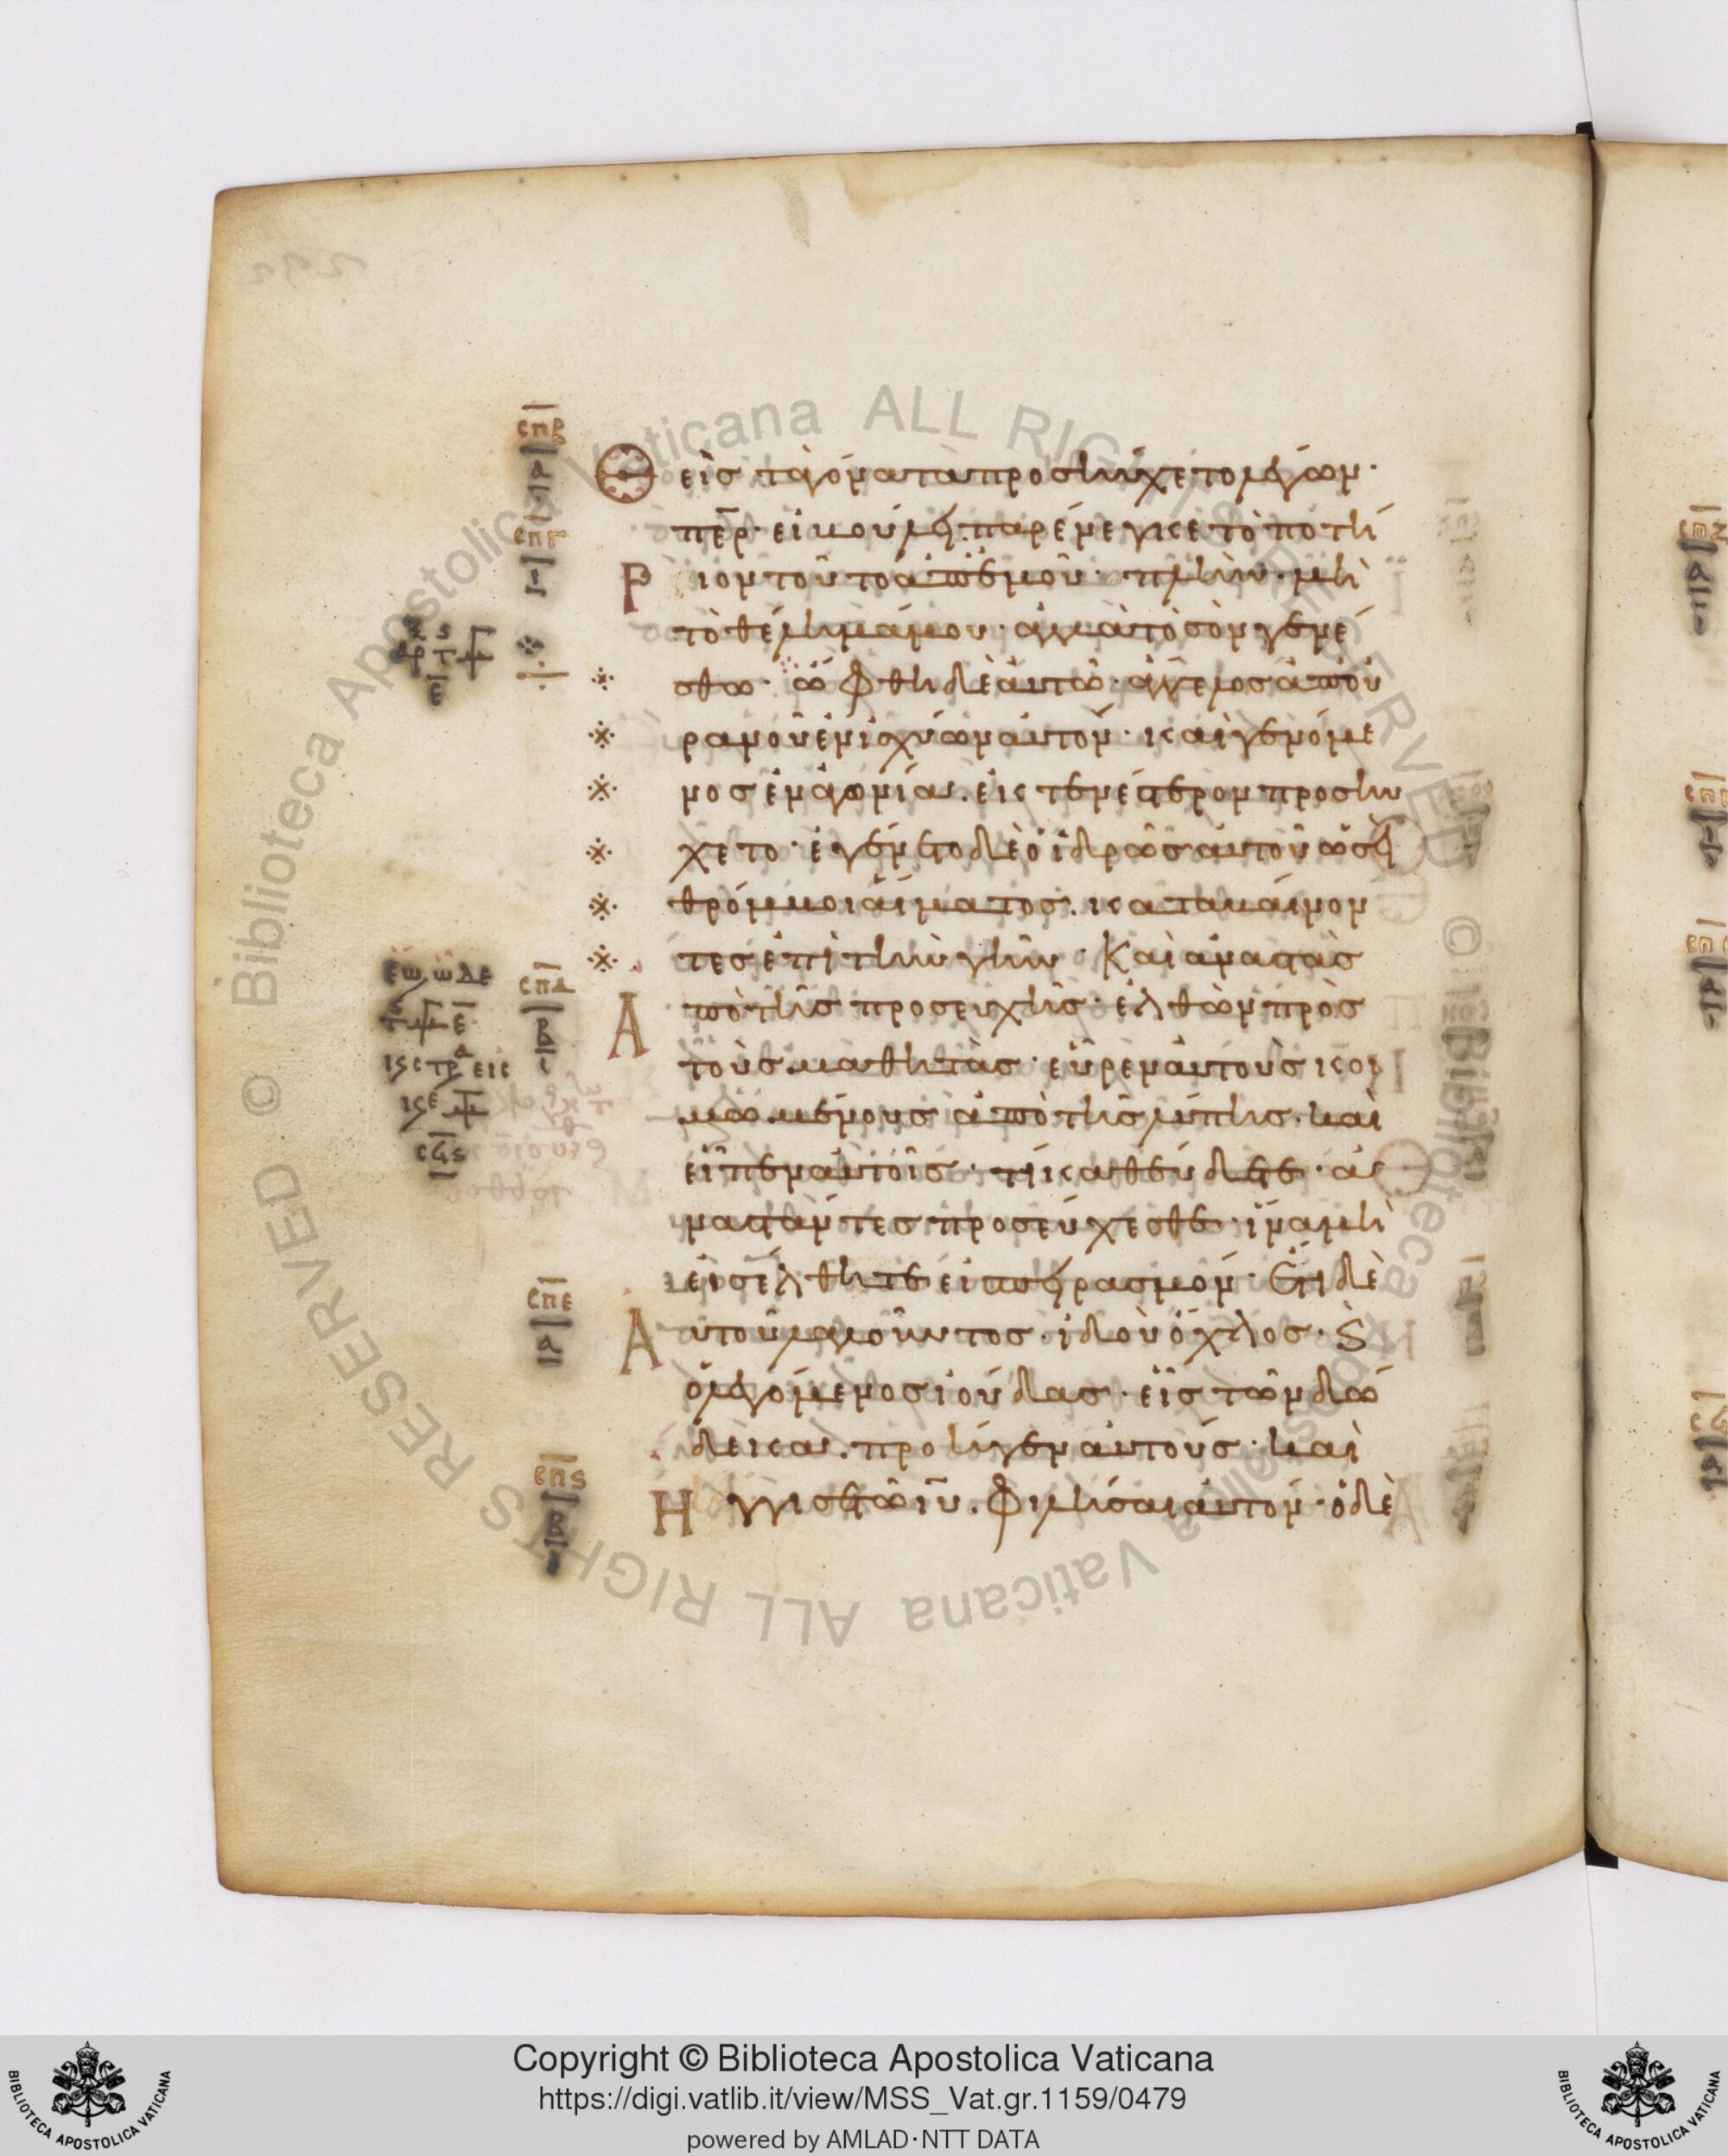 Θεὶς τὰ γόνατα προσηύχετο λέγων·
περ· εἰ βούλει παρένεγκε τὸ ποτή
ριον τοῦτο ἀπ' ἐμοῦ· πλὴν· μὴ
τὸ θέλημά μου· ἀλλὰ τὸ σὸν γενέ
σθω· ὤφθη δὲ αὐτῶ· ἄγγελος ἀπ' οὐ
ρανοῦ ἐνισχύων αὐτόν· καὶ γενόμε
νος ἐν ἀγωνία. ἐκτενέστερον προσηύ
χετο· ἐγένετο δὲ ὁ ἱδρὼς αὐτοῦ ὡσεὶ
θρόμβοι αἵματος. καταβαίνον
τες ἐπὶ τὴν γῆν· Καὶ ἀναστὰς
Ἀπὸ τῆς προσευχῆς· ἐλθὼν πρὸς
τοὺς μαθητὰς· εὗρεν αὐτοὺς κοι
μωμένους ἀπὸ τῆς λύπης. καὶ
εἶπεν αὐτοῖς· τί καθεύδετε· ἀ
ναστάντες προσεύχεσθε· ἵνα μὴ
εἰσέλθητε εἰ πειρασμόν· Ἔτι δὲ
Αὐτοῦ λαλοῦντος· ἰδοὺ ὄχλος· Ϛ
ὁ λεγόμενος ἰούδας· εἷς τῶν δώ
δεκα. προῆγεν αὐτούς· καὶ
Ἤγγισε τῶ ιυ. φιλῆσαι αὐτόν· ὁ δὲ
σπβ
σπγ
σπδ
σπε
σπς
Copyright © Biblioteca Apostolica Vaticana
https://digi.vatlib.it/view/MSS_Vat.gr.1159/0479
powered by AMLAD·NTT DATA
© Biblioteca Apostolica Vaticana ALL RIGHTS RESERVED © Biblioteca Apostolica Vaticana ALL RIGHTS RESERVED
BIBLIOTECA APOSTOLICA VATICANA
BIBLIOTECA APOSTOLICA VATICANA